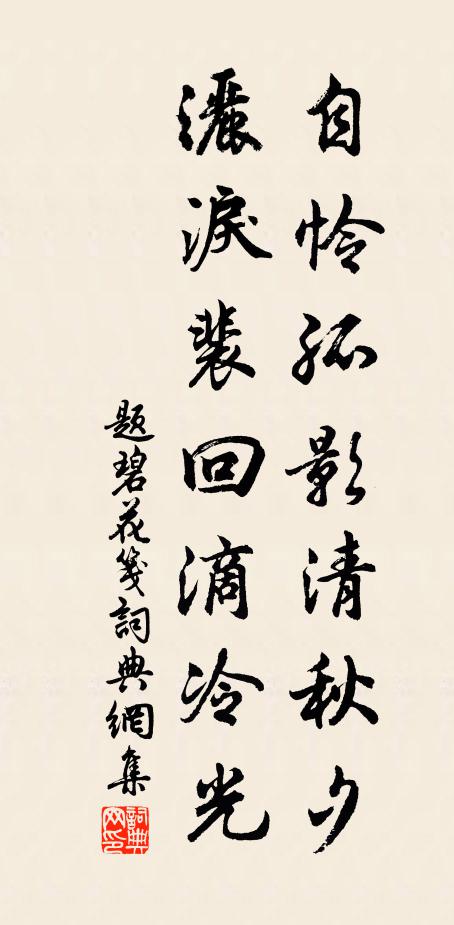 自怜孤影清秋夕
灑淚裴回滴冷光
題碧花箋詞典網集
詞典网印